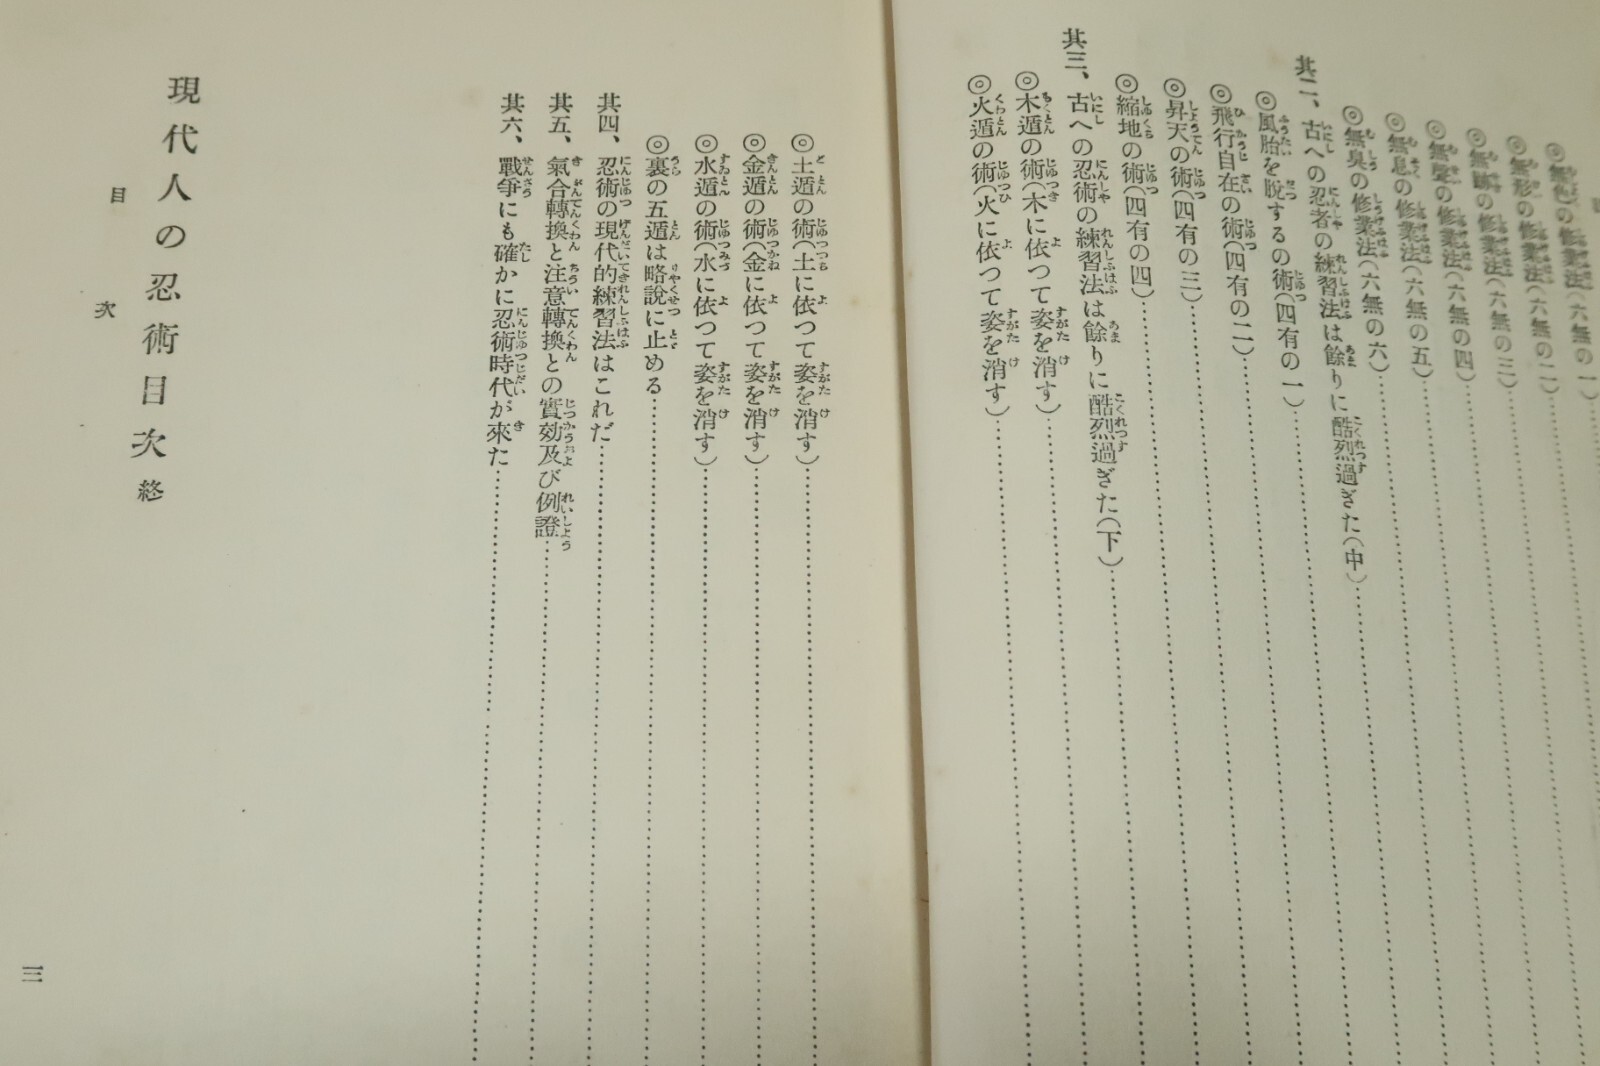 ◎無色の修業法(六無の一)
◎無形の修業法(六無の二)
の修業法(六無の三)
◎無聲の修業法(六無の四)
◎無息の修業法(六無の五)
◎無臭の修業法(六無の六)
其二、古への忍者の練習法は餘りに酷烈過ぎた(中)
◎風胎を脫するの術(四有の一)
◎飛行自在の術(四有の二)
◎昇天の術(四有の三)
◎縮地の術(四有の四)
其三、古への忍術の練習法は餘りに酷烈過ぎた(下)
◎木遁の術(木に依つて姿を消す)
◎火遁の術(火に依つて姿を消す)
◎土遁の術(土に依つて姿を消す)
◎金遁の術(金に依つて姿を消す)
◎水遁の術(水に依つて姿を消す)
◎裏の五遁は略說に止める
其四、忍術の現代的練習法はこれだ
其五、氣合轉換と注意轉換との實効及び例證
其六、戰爭にも確かに忍術時代が來た
現代人の忍術目次 終
目次
三